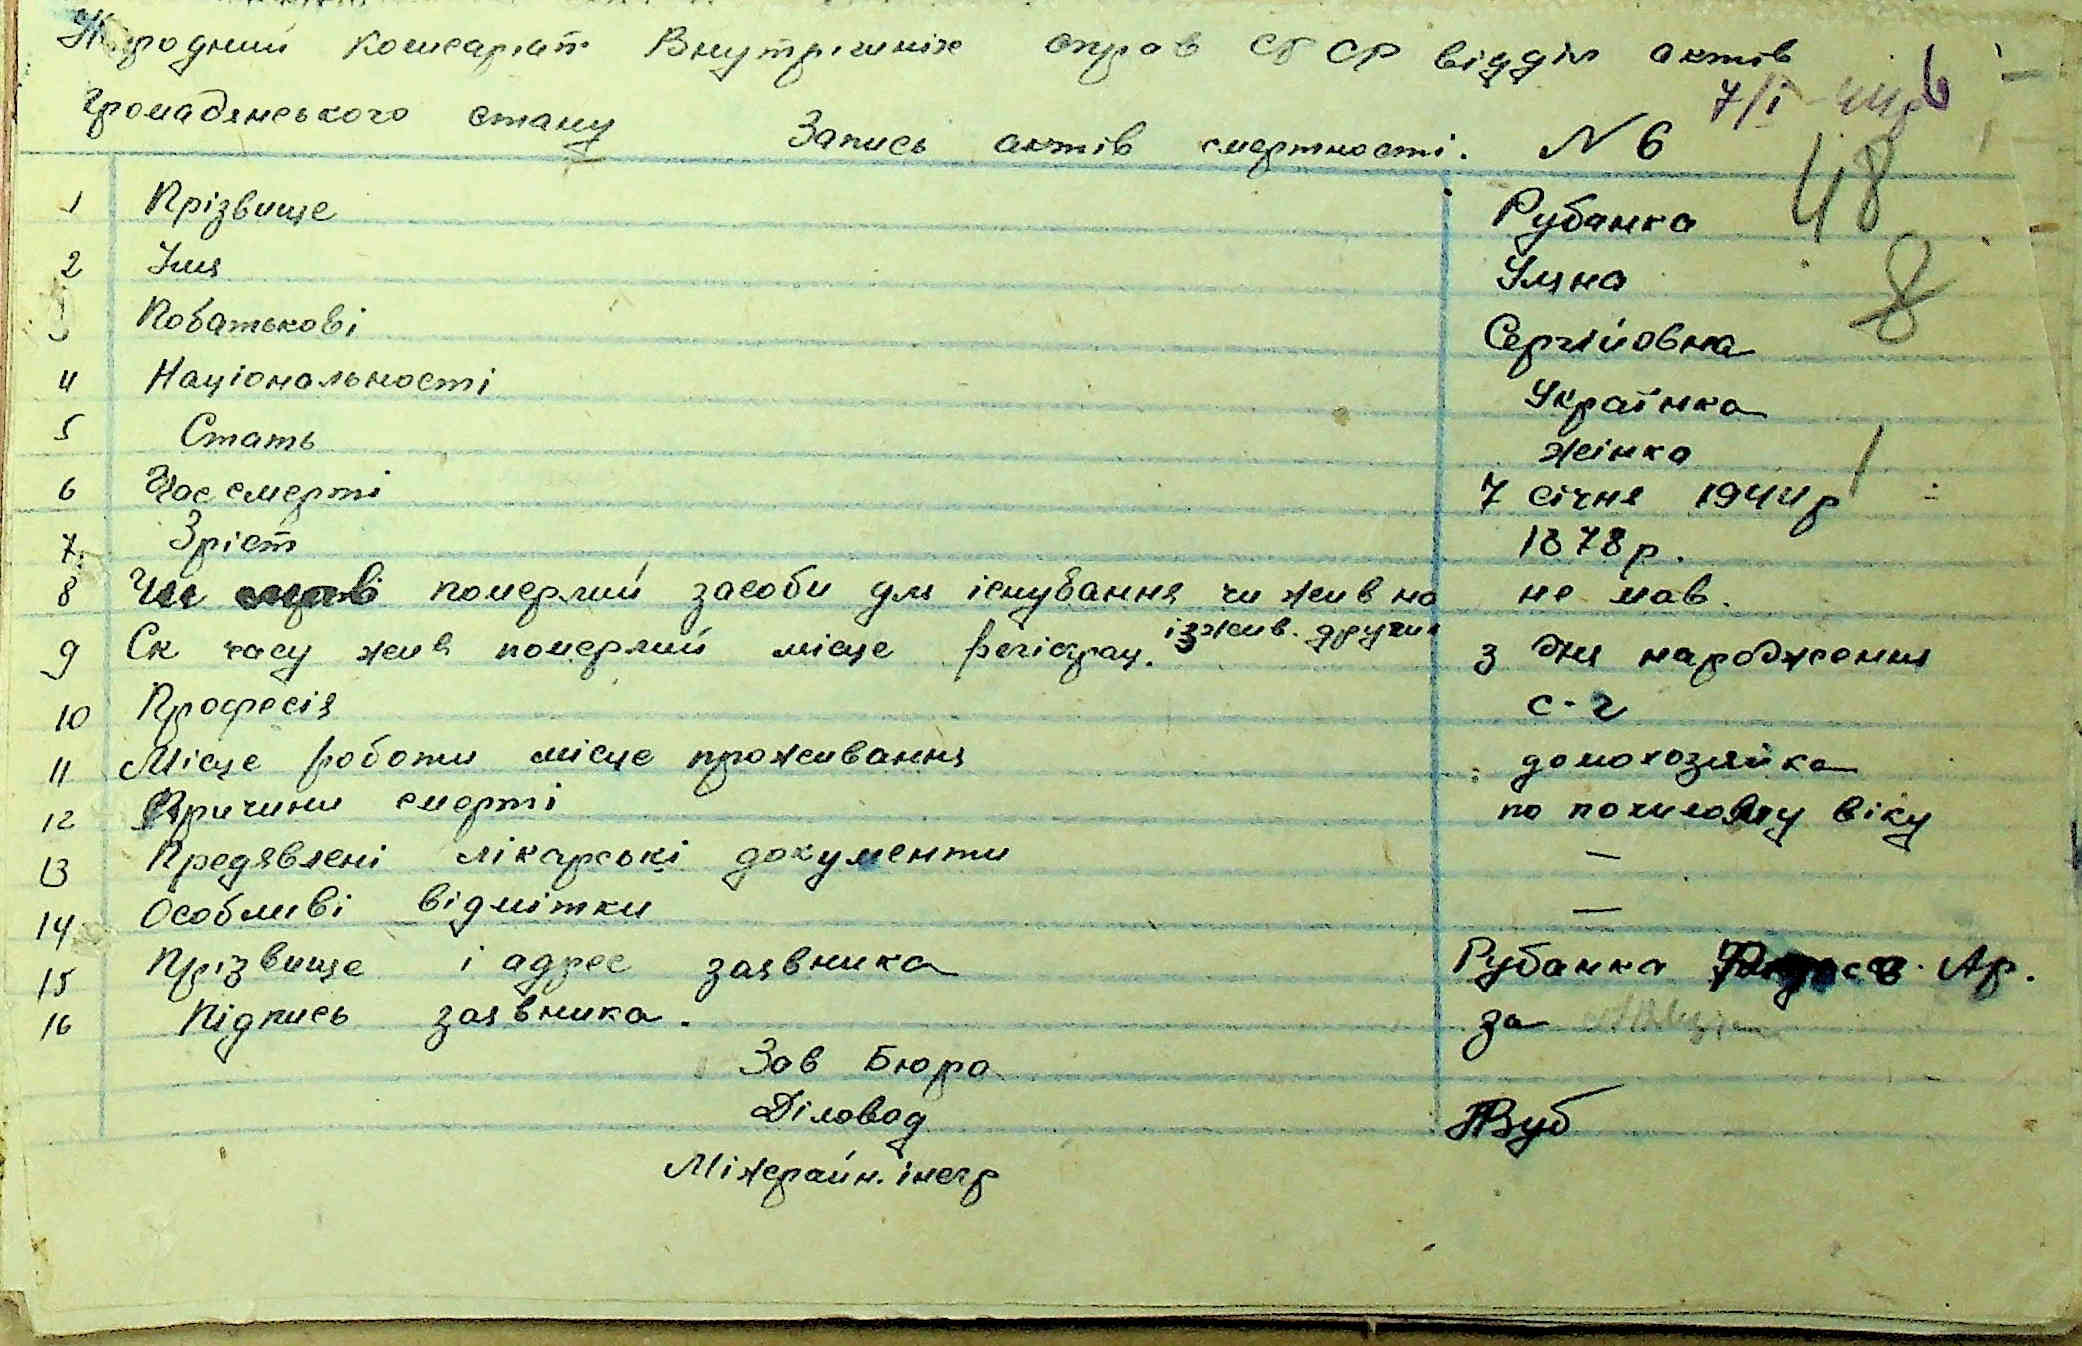 Народний Комісаріат Внутрішніх справ СРСР відділ актів
громадянського стану Запись актів смертності. N 6
7/I - 44р
48
8
1 Прізвище Рубанка
2 Імя Уляна
3 Побатькові Сергійовна
4 Національності Українка
5 Стать жінка
6 Час смерті 7 січня 1944р
7. Зріст 1878р.
8 Чи мав померлий засоби для існування чи жив на не мав.
із жив. других
9 Ск часу жив померлий місце регістрац. з дня народження
10 Професія с-г
11 Місце роботи місце проживання домохозяйка
12 Причини смерті по похилому віку
13 Предявлені лікарські документи —
14 Особливі відмітки —
15 Прізвище і адрес заявника Рубанка Ар.
16 Підпись заявника. за
Зав Бюро
Діловод
Міжрайн. інспр